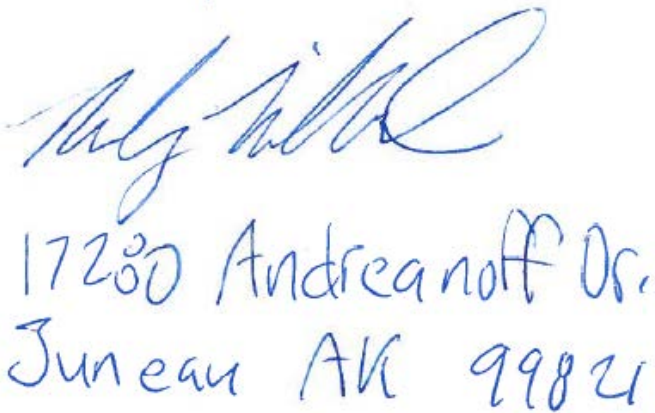 17280 Andreanoff Dr.
Juneau AK 99821